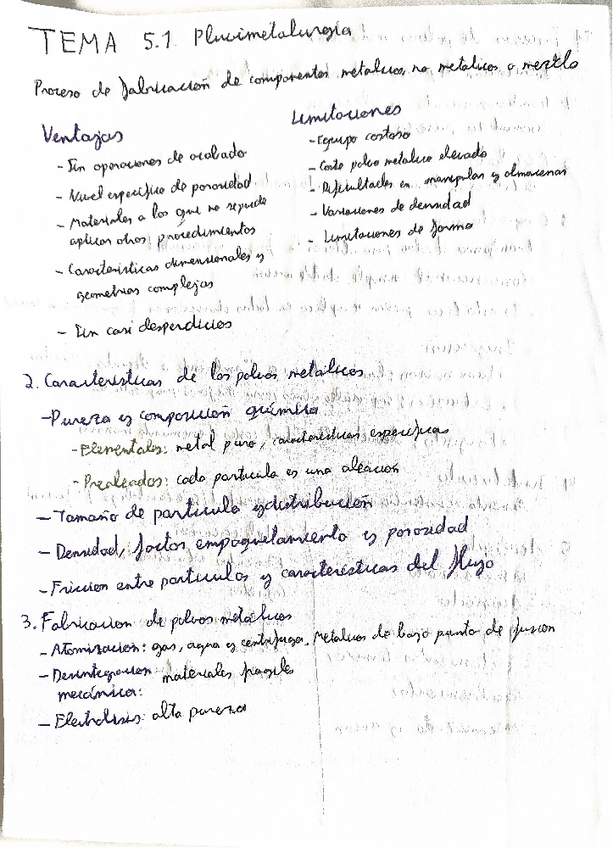 TEMA 5.1 Pluvimetalurgia
Proceso de fabricación de componentes metalicos, no metalicos o mezcla
Ventajas
- Sin operaciones de acabado
- Nivel especifico de porosidad
- Materiales a los que no se puede
aplicar otros procedimientos
- Caracteristicas dimensionales y
geometrias complejas
- Sin casi desperdicios
Limitaciones
- Equipo costoso
- Coste polvo metalico elevado
- Dificultades en manipular y almacenar
- Variaciones de densidad
- Limitaciones de forma
2. Caracteristicas de los polvos metalicos
- Pureza y composición química
- Elementales: metal puro, caracteristicas especificas
- Prealeados: cada particula es una aleación
- Tamaño de particula y distribución
- Densidad, factor empaquetamiento y porosidad
- Friccion entre particulas y caracteristicas del flujo
3. Fabricacion de polvos metálicos
- Atomizacion: gas, agua y centrifuga. Metalicos de bajo punto de fusion
- Desintegracion materiales fragiles
mecánica:
- Electrolisis: alta pureza